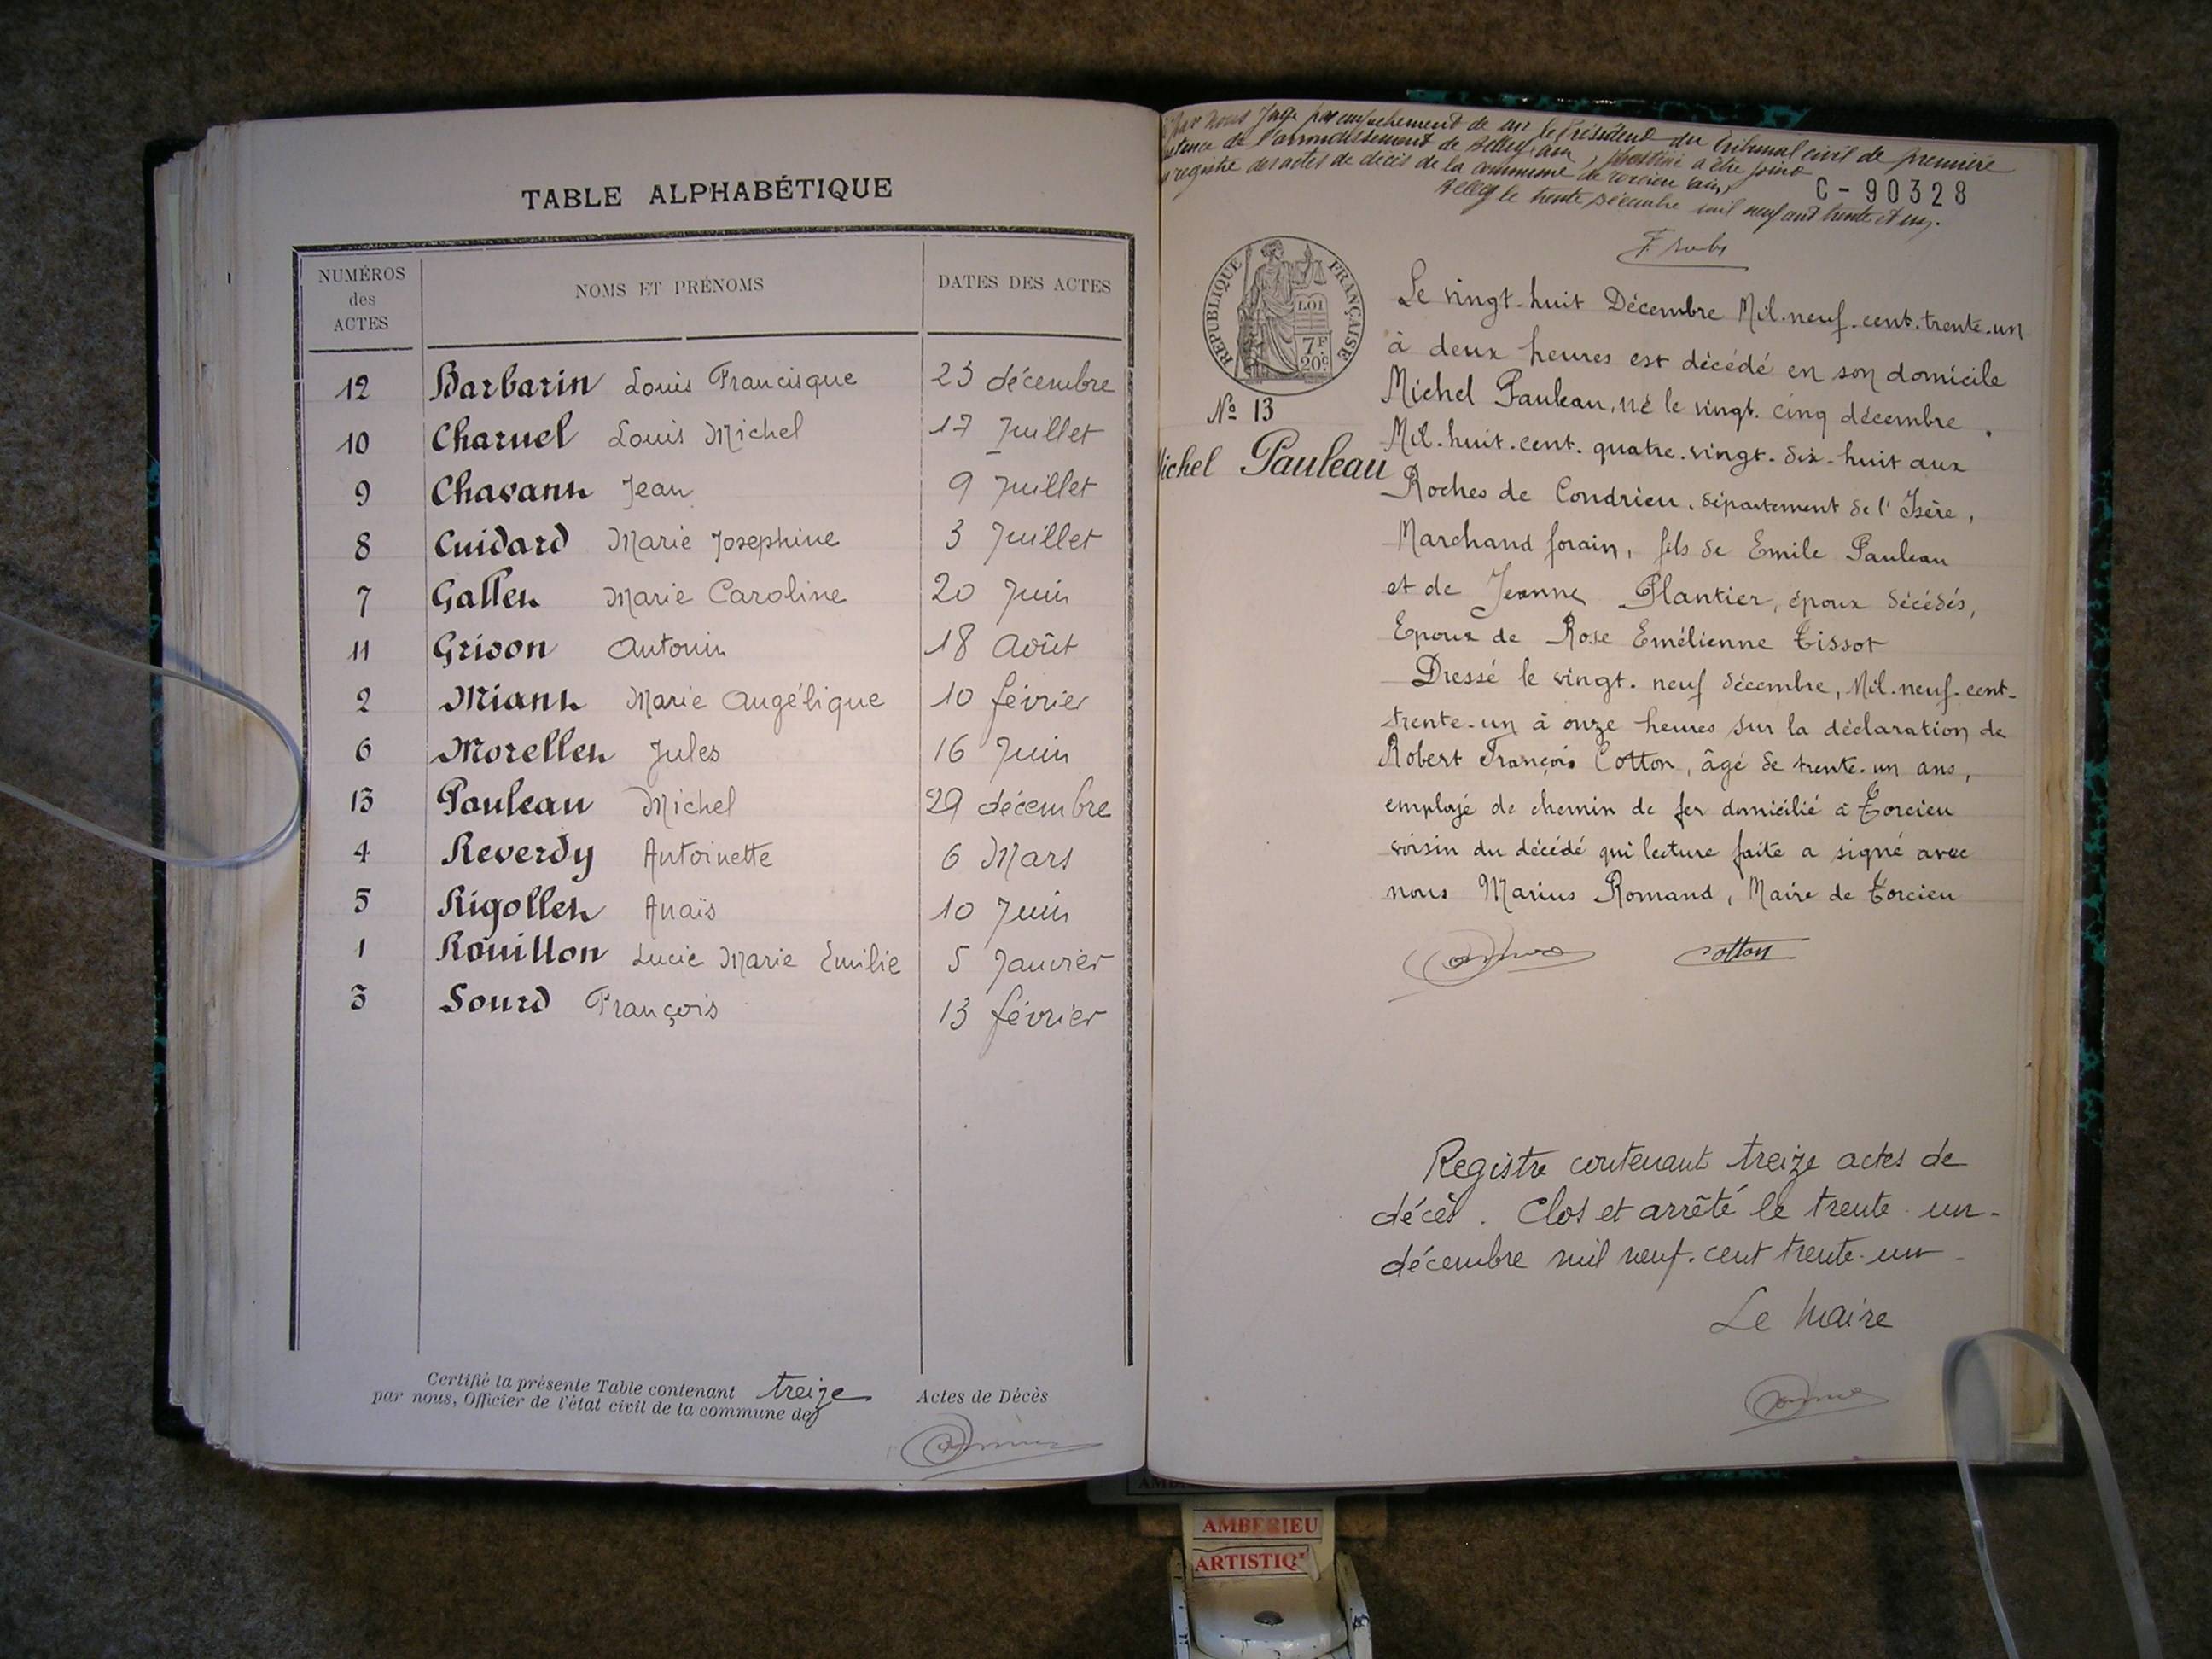 TABLE ALPHABÉTIQUE
NUMÉROS
des
ACTES
NOMS ET PRÉNOMS
DATES DES ACTES
12 Barbarin Louis Francisque 23 décembre
10 Charuel Louis Michel 17 Juillet
9 Jean 9 Juillet
8 Cuidard Marie Josephine 3 Juillet
7 Marie Caroline 20 Juin
11 Grison Antonin 18 Août
2 Marie Angélique 10 février
6 Jules 16 Juin
13 Pauleau Michel 29 décembre
4 Reverdy Antoinette 6 Mars
5 Anaïs 10 Juin
1 Rouillon Lucie Marie Emilie 5 Janvier
3 Sourd François 13 février
Certifié la présente Table contenant treize Actes de Décès
par nous, Officier de l'état civil de la commune de
par nous Juge par empêchement de Mr le Président du Tribunal civil de première
de l'arrondissement de Belley, Ain, à être joint
registre des actes de décès de la commune de Torcieu (Ain)
Belley le trente décembre mil neuf cent trente et un.
C-90328
RÉPUBLIQUE FRANÇAISE
LOI
7F
20c
Nº 13
Michel Pauleau
Le vingt-huit Décembre Mil-neuf-cent-trente-un
à deux heures est décédé en son domicile
Michel Pauleau, né le vingt-cinq décembre
Mil-huit-cent-quatre-vingt-dix-huit aux
Roches de Condrieu, département de l'Isère,
Marchand forain, fils de Emile Pauleau
et de Jeanne Plantier, époux décédés,
Epoux de Rose Emélienne Tissot
Dressé le vingt-neuf décembre, Mil-neuf-cent-
trente-un à onze heures sur la déclaration de
Robert François Cotton, âgé de trente-un ans,
employé de chemin de fer domicilié à Torcieu
voisin du décédé qui lecture faite a signé avec
nous Marius Romand, Maire de Torcieu
Cotton
Registre contenant treize actes de
décès. Clos et arrêté le trente-un-
décembre mil neuf-cent trente-un-
Le Maire
AMBERIEU
ARTISTIQ